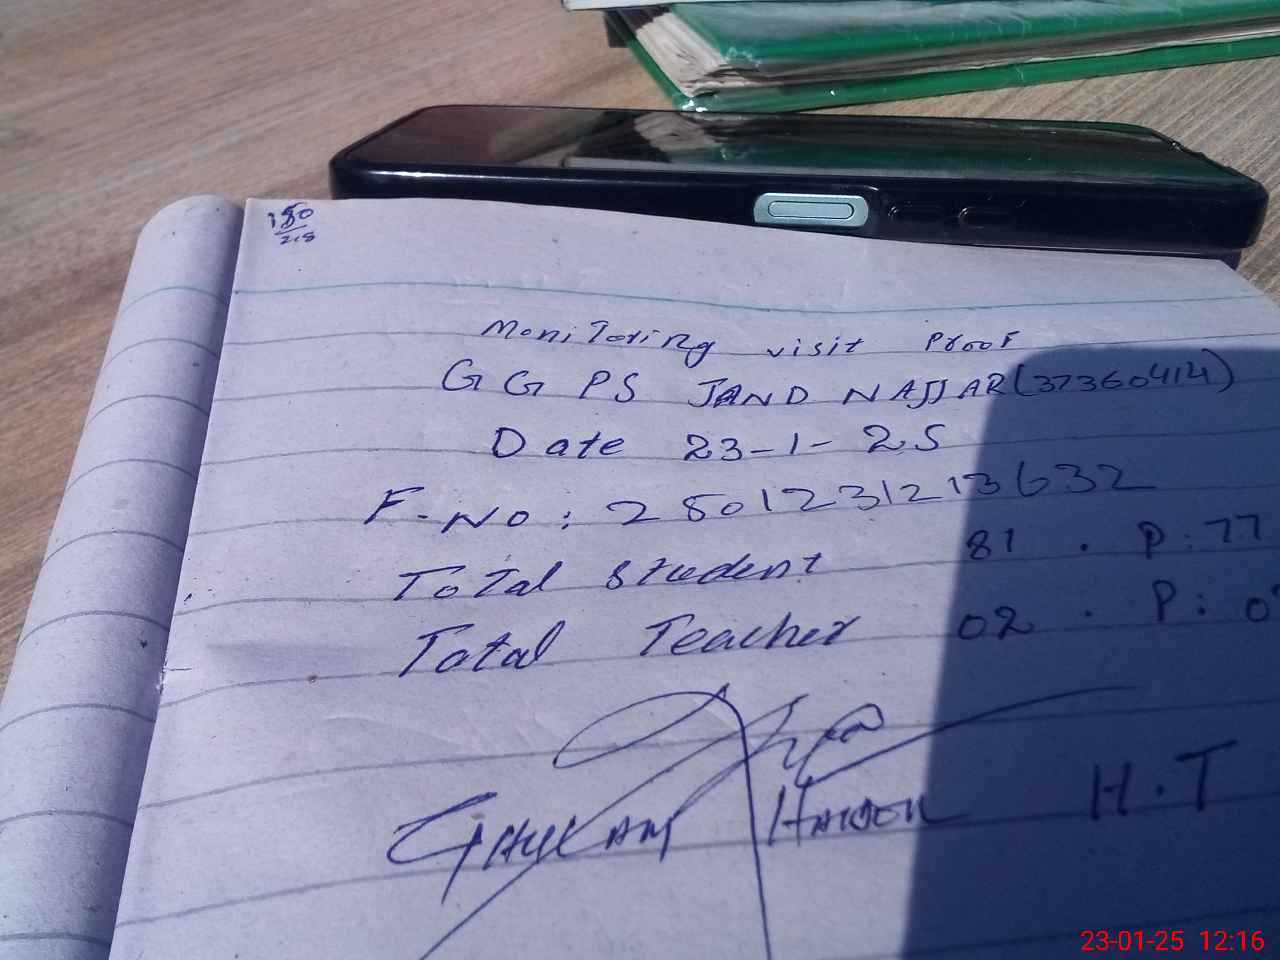 150
2.8
Monitoring visit Proof
G G PS JAND NAJJAR (37360414)
Date 23-1-25
F-No: 2501231213632
Total Student 81 . P: 77
Total Teacher 02 . P: 0
GHULAM HAIDER H.T
23-01-25 12:16